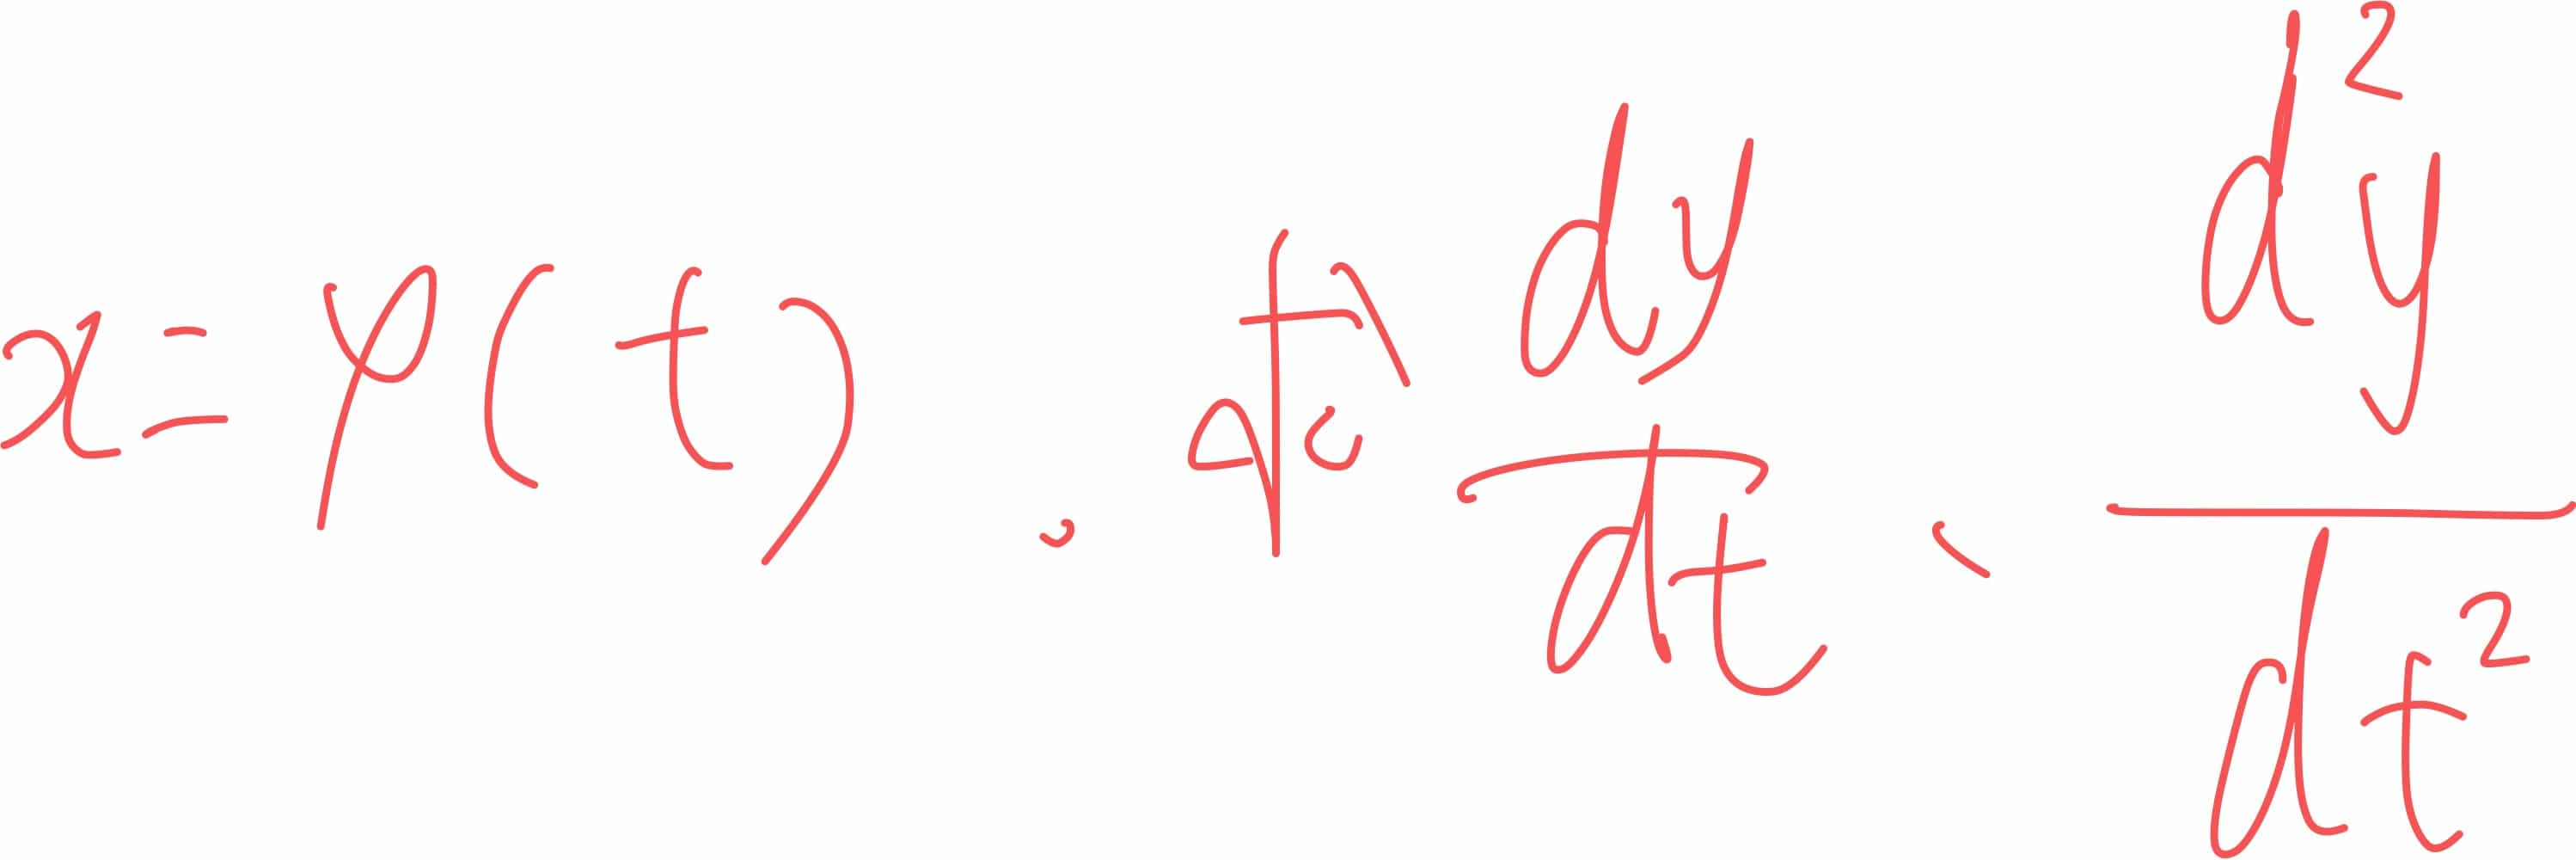 x=φ(t), 求 dy/dt、d²y/dt²